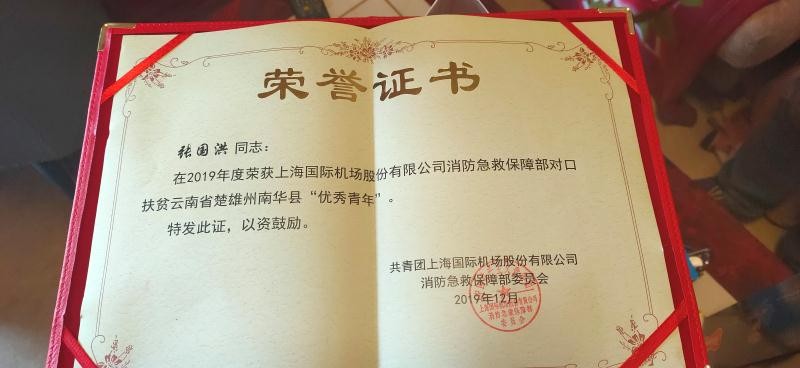 荣誉证书
张国洪 同志：
在2019年度荣获上海国际机场股份有限公司消防急救保障部对口
扶贫云南省楚雄州南华县“优秀青年”。
特发此证，以资鼓励。
共青团上海国际机场股份有限公司
消防急救保障部委员会
2019年12月
上海国际机场股份有限公司
消防急救保障部
委员会